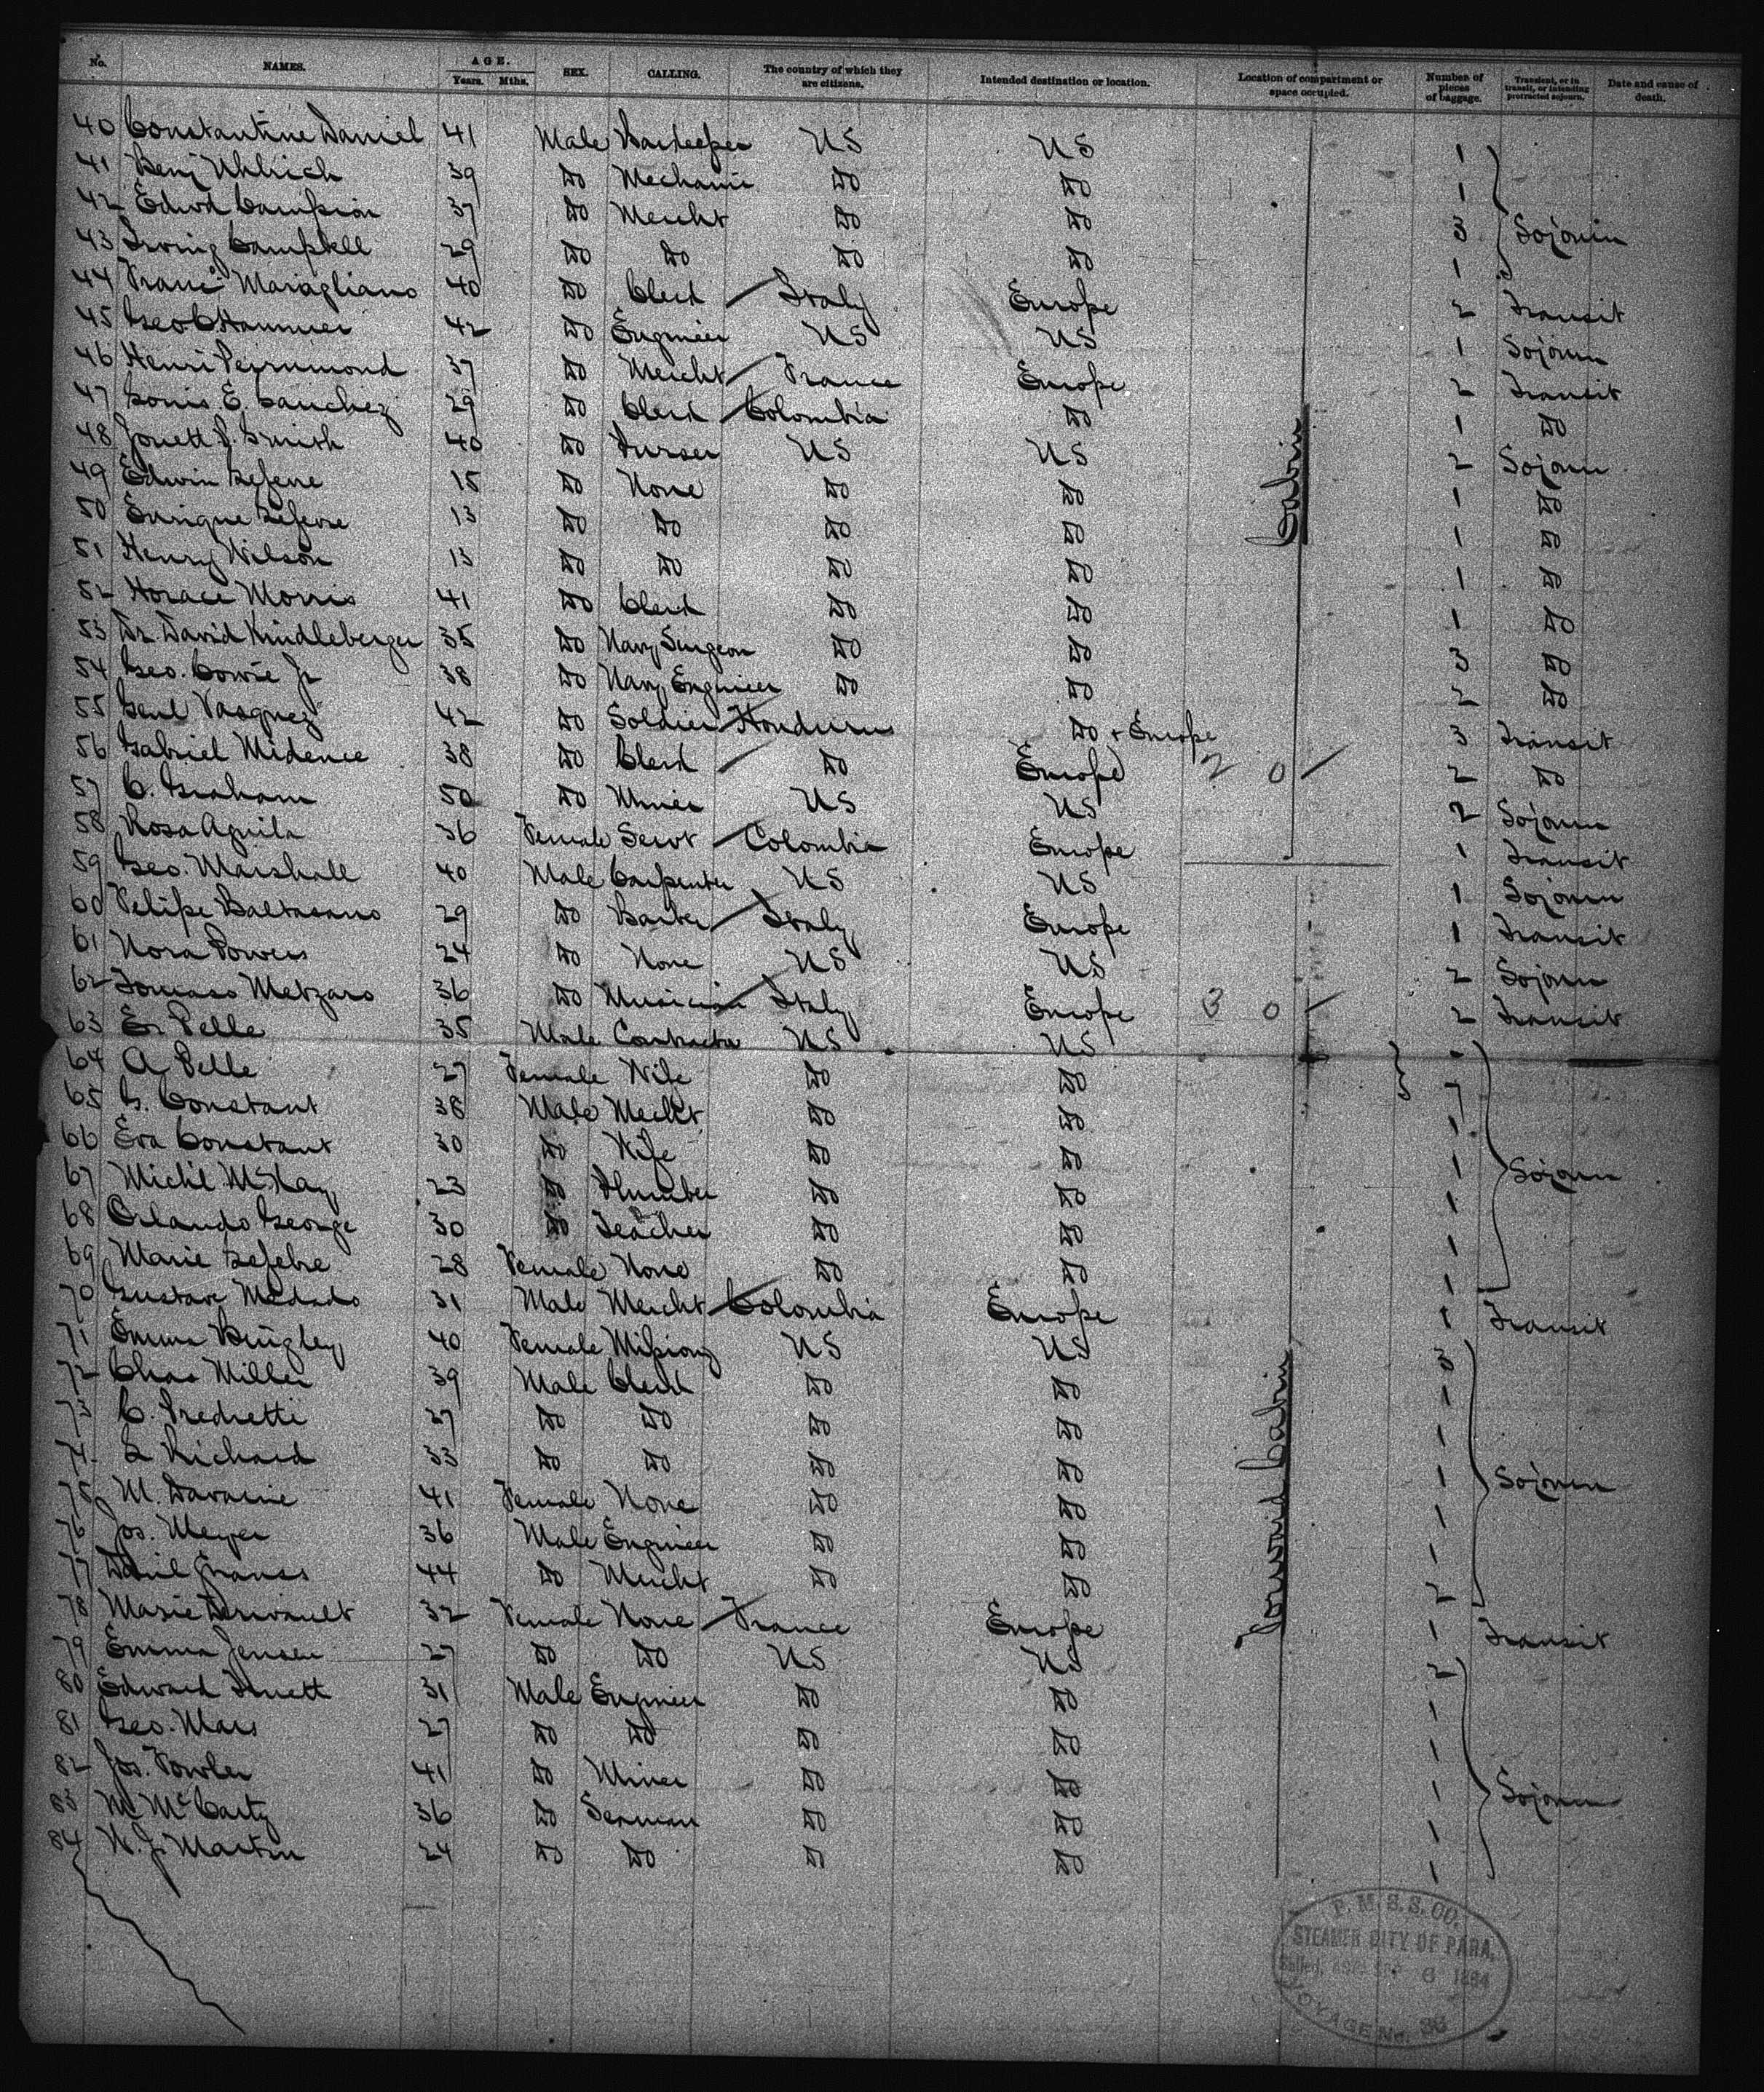 No. NAMES. AGE. Years. Mths. SEX. CALLING. The country of which they are citizens. Intended destination or location. Location of compartment or space occupied. Number of pieces of baggage. Transient, or in transit, or intending protracted sojourn. Date and cause of death.
40 Constantine Daniel 41 Male Barkeeper US US 1
41 Benj Uhlrich 39 Do Mechanic Do Do 1
42 Edwd Campion 37 Do Mercht Do Do 3 Sojourn
43 Irving Campbell 29 Do Do Do Do 1
44 Franc Maragliano 40 Do Clerk Italy Europe 2 Transit
45 Geo C Hammer 42 Do Engineer US US 1 Sojourn
46 Henri Peyrumond 37 Do Mercht France Europe 2 Transit
47 Louis E. Sanchez 29 Do Clerk Colombia Do 1 Do
48 Jouett S. Smith 40 Do Purser US US 2 Sojourn
49 Edwin Lefevre 15 Do None Do Do 1 Do
50 Enrique Lefevre 13 Do Do Do Do 1 Do
Cabin
51 Henry Wilson 13 Do Do Do Do 1 Do
52 Horace Morris 41 Do Clerk Do Do 1 Do
53 Dr. David Kindleberger 35 Do Navy Surgeon Do Do 3 Do
54 Geo. Cowie Jr 38 Do Navy Engineer Do Do 2 Do
55 Genl Vasquez 42 Do Soldier Honduras Do + Europe 3 Transit
56 Gabriel Midence 38 Do Clerk Do Europe 2 0 2 Do
57 C. Graham 50 Do Miner US US 2 Sojourn
58 Rosa Aguila 36 Female Servt Colombia Europe 1 Transit
59 Geo. Marshall 40 Male Carpenter US US 1 Sojourn
60 Felipe Baltasano 29 Do Barber Italy Europe 1 Transit
61 Nora Powers 24 Do None US US 2 Sojourn
62 Tomaso Metzaro 36 Do Musician Italy Europe 3 0 2 Transit
63 Er. Pelle 35 Male Contractor US US
64 A Pelle 27 Female Wife Do Do 7
65 G. Constant 38 Male Mercht Do Do 1
66 Eva Constant 30 Do Wife Do Do 1 Sojourn
67 Michl McKay 23 Do Plumber Do Do 1
68 Orlando George 30 Do Teacher Do Do 1
69 Marie Lefebre 28 Female None Do Do 1
70 Gustave Medado 31 Male Mercht Colombia Europe 1 Transit
71 Emma Bingley 40 Female Missiony US US 3
72 Chas Miller 39 Male Clerk Do Do 1
73 C. Predretti 27 Do Do Do Do 1
74 L Richard 33 Do Do Do Do 1 Sojourn
75 M. Davacine 41 Female None Do Do 1
76 Jos. Meyer 36 Male Engineer Do Do 1
77 Danil Grauss 44 Do Mercht Do Do 2
Forward Cabin
78 Marie Derivault 32 Female None France Europe 1 Transit
79 Emma Jensen 27 Do Do US US 2
80 Edward Truett 31 Male Engineer Do Do 1
81 Geo. Mars 27 Do Do Do Do 1
82 Jos. Fowler 41 Do Miner Do Do 1 Sojourn
83 M McCarty 36 Do Seaman Do Do 1
84 W. J. Martin 24 Do Do D Do 1
P. M. S. S. CO.
STEAMER CITY OF PARA,
Sailed, SEP 6
VOYAGE No. 86